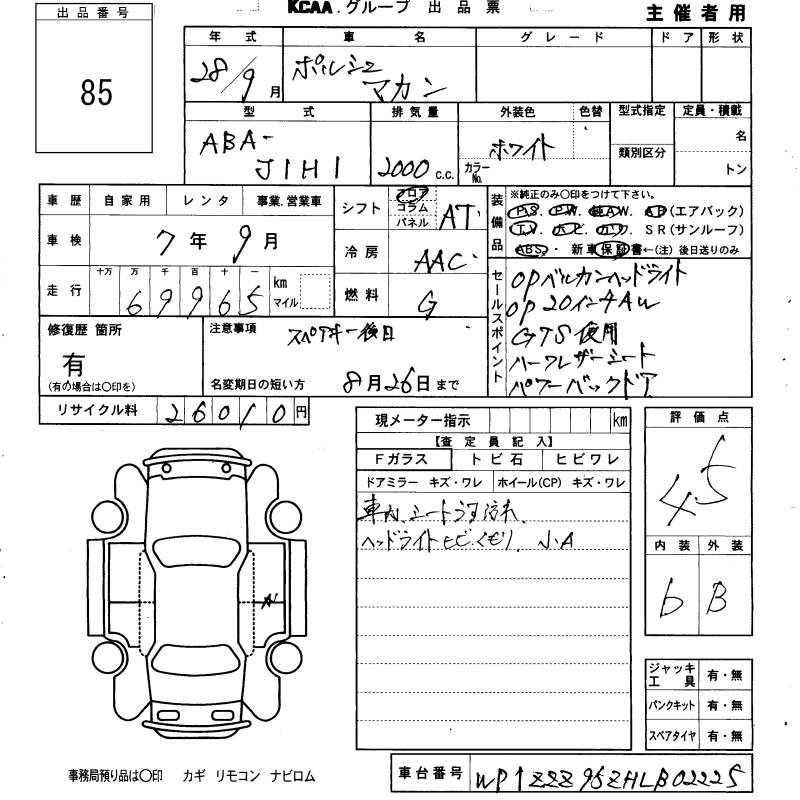 出品番号
85
KCAA.グループ 出品票
主催者用
年式 車名 グレード ドア 形状
28/9月 ポルシェ マカン
型式 排気量 外装色 色替 型式指定 定員・積載
ABA-J1H1 2000 c.c. ホワイト カラーNo. 類別区分 名 トン
車歴 自家用 レンタ 事業.営業車
車検 7年9月
走行 十万 万 千 百 十 一
69965 km マイル
シフト フロア コラム パネル AT
冷房 AAC
燃料 G
装備品 ※純正のみ○印をつけて下さい。
P.S. P.W. 純AW. AB(エアバック)
T.V. ナビ. カワ. SR(サンルーフ)
ABS. 新車保証書←(注)後日送りのみ
セールスポイント
OPバルカンヘッドライト
OP20インチAW
GTS使用
ハーフレザーシート
パワーバックドア
修復歴 箇所
有
(有の場合は○印を)
注意事項 スペアキー後日
名変期日の短い方 8月26日まで
リサイクル料 26010円
現メーター指示 km
【査定員記入】
Fガラス トビ石 ヒビワレ
ドアミラー キズ・ワレ ホイール(CP) キズ・ワレ
車内.シートうす汚れ.
ヘッドライトヒビ.くもり. 小A
評価点
4.5
内装 外装
b B
A1
ジャッキ工具 有・無
パンクキット 有・無
スペアタイヤ 有・無
事務局預り品は○印 カギ リモコン ナビロム
車台番号 WP1ZZZ95ZHLB02225